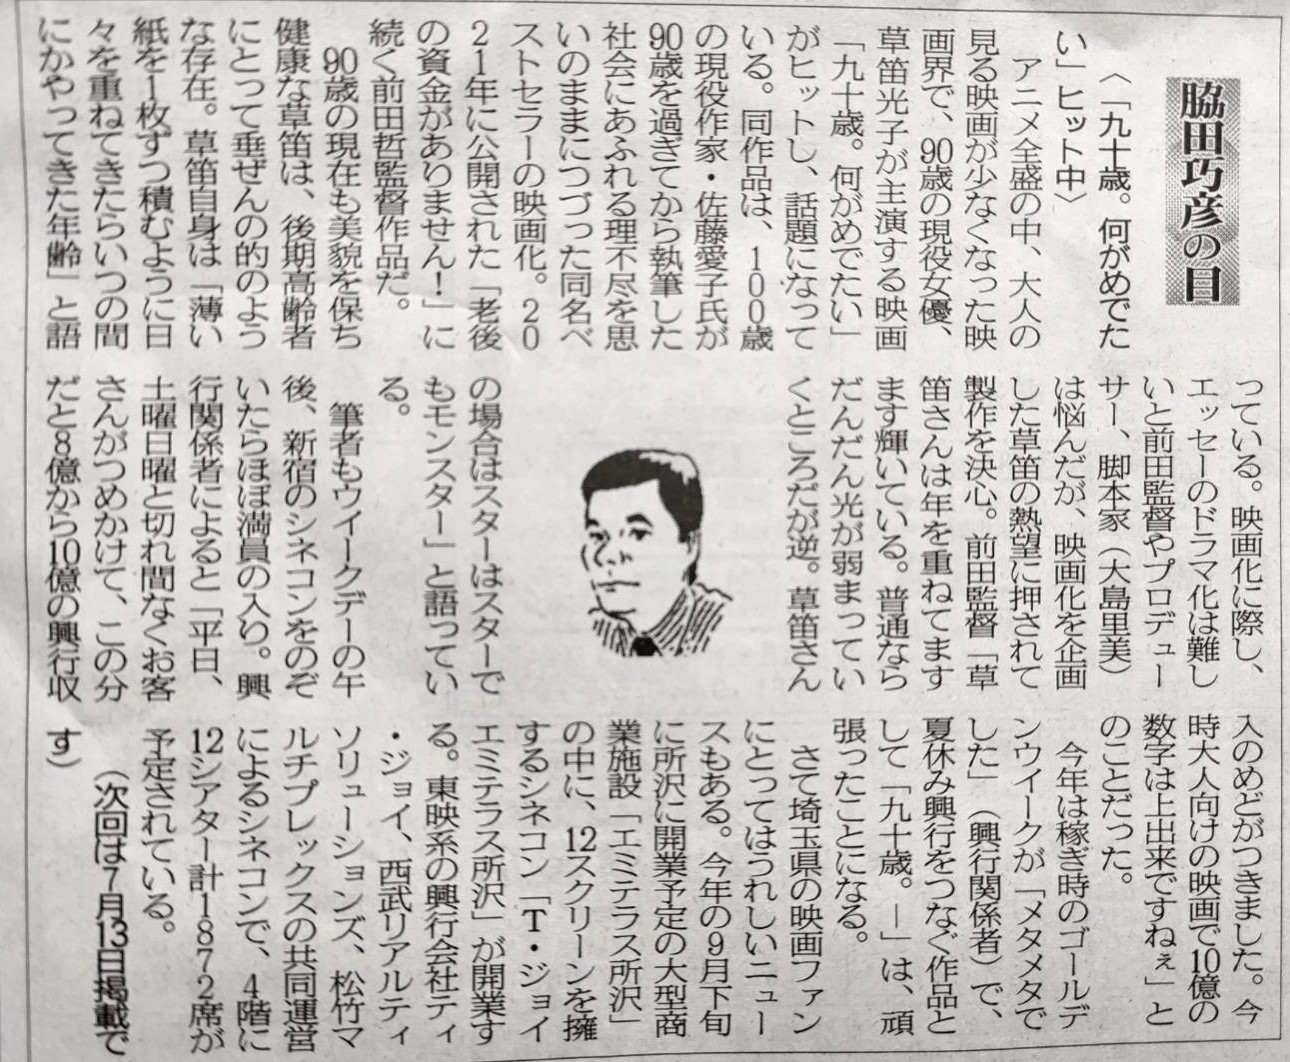 脇田巧彦の目
〈「九十歳。何がめでた
い」ヒット中〉
アニメ全盛の中、大人の
見る映画が少なくなった映
画界で、90歳の現役女優、
草笛光子が主演する映画
「九十歳。何がめでたい」
がヒットし、話題になって
いる。同作品は、100歳
の現役作家・佐藤愛子氏が
90歳を過ぎてから執筆した
社会にあふれる理不尽を思
いのままにつづった同名ベ
ストセラーの映画化。20
21年に公開された「老後
の資金がありません！」に
続く前田哲監督作品だ。
90歳の現在も美貌を保ち
健康な草笛は、後期高齢者
にとって垂ぜんの的のよう
な存在。草笛自身は「薄い
紙を1枚ずつ積むように日
々を重ねてきたらいつの間
にかやってきた年齢」と語
っている。映画化に際し、
エッセーのドラマ化は難し
いと前田監督やプロデュー
サー、脚本家（大島里美）
は悩んだが、映画化を企画
した草笛の熱望に押されて
製作を決心。前田監督「草
笛さんは年を重ねてますま
ます輝いている。普通なら
だんだん光が弱まってい
くところだが逆。草笛さん
の場合はスターはスターで
もモンスター」と語ってい
る。
筆者もウイークデーの午
後、新宿のシネコンをのぞ
いたらほぼ満員の入り。興
行関係者によると「平日、
土曜日曜と切れ間なくお客
さんがつめかけて、この分
だと8億から10億の興行収
入のめどがつきました。今
時大人向けの映画で10億の
数字は上出来ですねぇ」と
のことだった。
今年は稼ぎ時のゴールデ
ンウイークが「メタメタで
した」（興行関係者）で、
夏休み興行をつなぐ作品と
して「九十歳。―」は、頑
張ったことになる。
さて埼玉県の映画ファン
にとってはうれしいニュー
スもある。今年の9月下旬
に所沢に開業予定の大型商
業施設「エミテラス所沢」
の中に、12スクリーンを擁
するシネコン「T・ジョイ
エミテラス所沢」が開業す
る。東映系の興行会社ティ
・ジョイ、西武リアルティ
ソリューションズ、松竹マ
ルチプレックスの共同運営
によるシネコンで、4階に
12シアター計1872席が
予定されている。
（次回は7月13日掲載で
す）